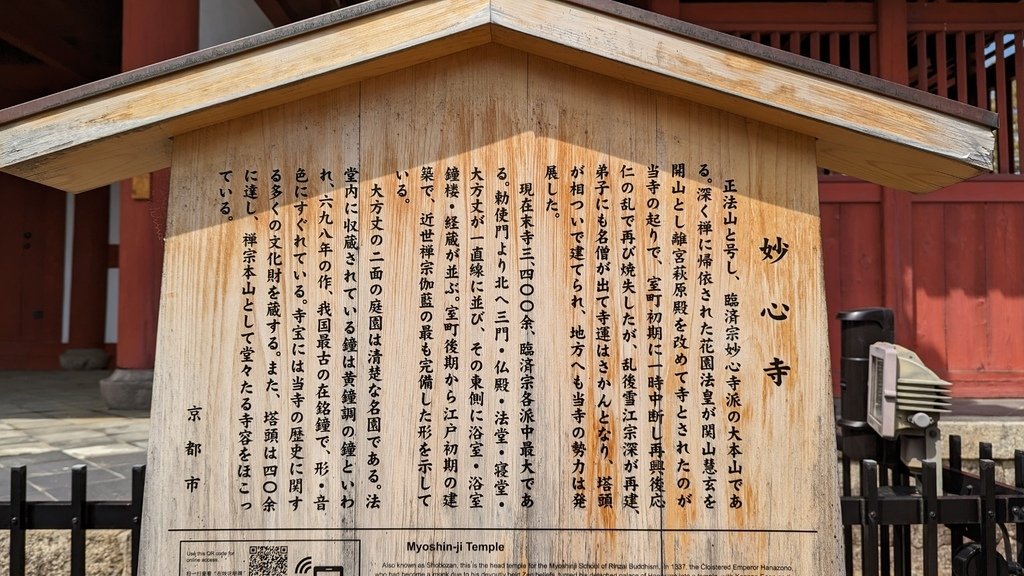 妙心寺
正法山と号し、臨済宗妙心寺派の大本山であ
る。深く禅に帰依された花園法皇が関山慧玄を
開山とし離宮萩原殿を改めて寺とされたのが
当寺の起りで、室町初期に一時中断し再興後応
仁の乱で再び焼失したが、乱後雪江宗深が再建、
弟子にも名僧が出て寺運はさかんとなり、塔頭
が相ついで建てられ、地方へも当寺の勢力は発
展した。
現在末寺三、四〇〇余、臨済宗各派中最大であ
る。勅使門より北へ三門・仏殿・法堂・寝堂・
大方丈が一直線に並び、その東側に浴室・浴室
鐘楼・経蔵が並ぶ。室町後期から江戸初期の建
築で、近世禅宗伽藍の最も完備した形を示して
いる。
大方丈の二面の庭園は清楚な名園である。法
堂内に収蔵されている鐘は黄鐘調の鐘といわ
れ、六九八年の作、我国最古の在銘鐘で、形・音
色にすぐれている。寺宝には当寺の歴史に関す
る多くの文化財を蔵する。また、塔頭は四〇余
に達し、禅宗本山として堂々たる寺容をほこっ
ている。
京都市
Use this QR code for
online access.
Myoshin-ji Temple
Also known as Shobozan, this is the head temple for the Myoshinji School of Rinzai Buddhism. In 1337, the Cloistered Emperor Hanazono,
who had become a monk due to his devoutly held Zen beliefs,